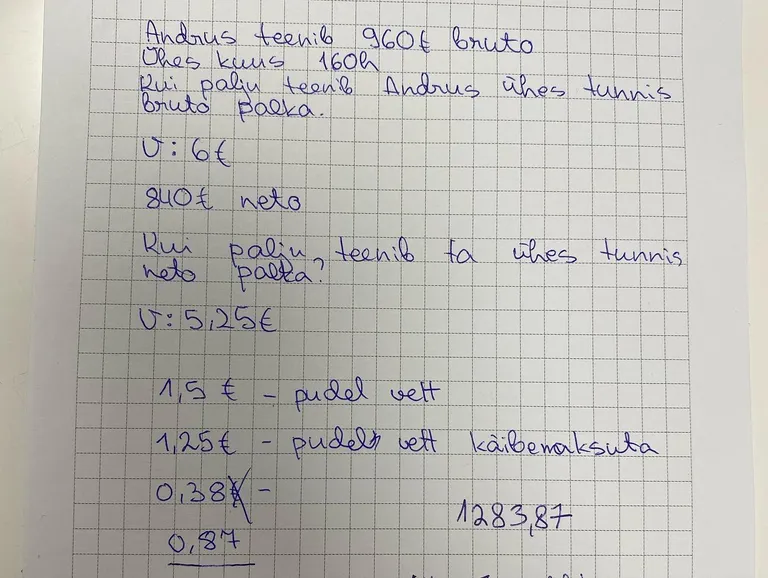 Andrus teenib 960€ bruto
Ühes kuus 160h
Kui palju teenib Andrus ühes tunnis
bruto palka.
V: 6€
840€ neto
Kui palju teenib ta ühes tunnis
neto palka?
V: 5,25€
1,5 € - pudel vett
1,25€ - pudel vett käibemaksuta
0,38€ -
0,87
1283,87